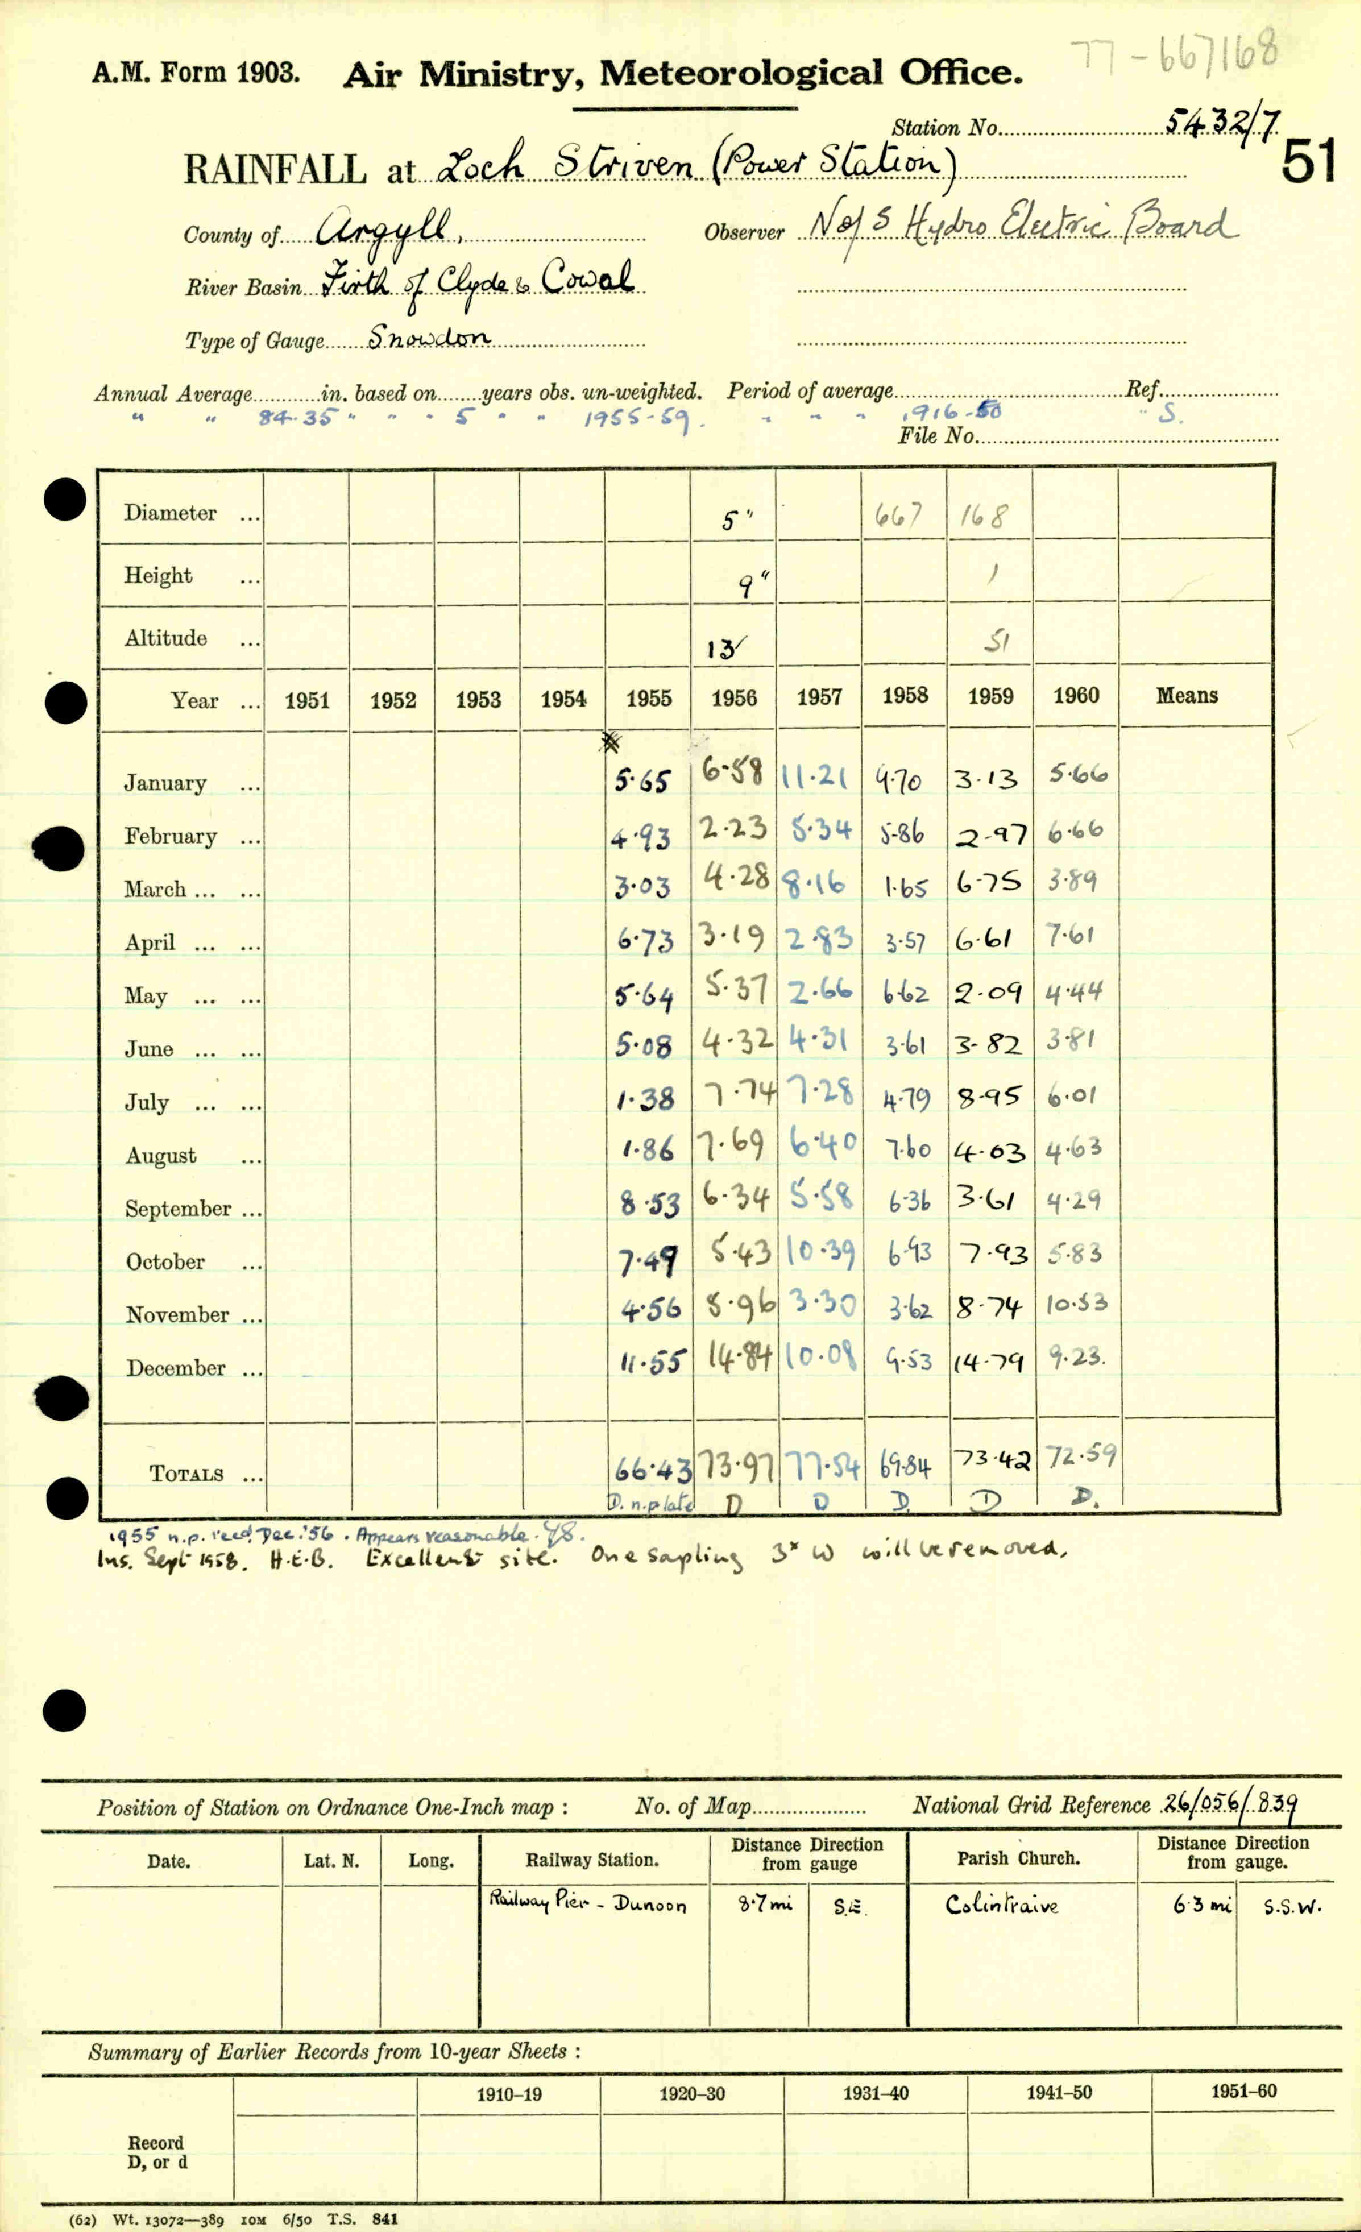 77-667168
A.M. Form 1903. Air Ministry, Meteorological Office.
Station No. 5432/7
51
RAINFALL at Loch Striven (Power Station)
County of Argyll, Observer N of S Hydro Electric Board
River Basin Firth of Clyde & Cowal
Type of Gauge Snowdon
Annual Average in. based on years obs. un-weighted. Period of average Ref.
" " 84.35 " " " 5 " " 1955-59. " " " 1916-50 " S.
File No.
Diameter ... 5" 667 168
Height ... 9" 1
Altitude ... 13' 51
Year ... 1951 1952 1953 1954 1955 1956 1957 1958 1959 1960 Means
January ... 5.65 6.58 11.21 9.70 3.13 5.66
February ... 4.93 2.23 5.34 5.86 2.97 6.66
March ... ... 3.03 4.28 8.16 1.65 6.75 3.89
April ... ... 6.73 3.19 2.83 3.57 6.61 7.61
May ... ... 5.64 5.37 2.66 6.62 2.09 4.44
June ... ... 5.08 4.32 4.31 3.61 3.82 3.81
July ... ... 1.38 7.74 7.28 4.79 8.95 6.01
August ... 1.86 7.69 6.40 7.60 4.03 4.63
September ... 8.53 6.34 5.58 6.36 3.61 4.29
October ... 7.49 5.43 10.39 6.93 7.93 5.83
November ... 4.56 5.96 3.30 3.62 8.74 10.53
December ... 11.55 14.84 10.08 9.53 14.79 9.23.
TOTALS ... 66.43 73.97 77.54 69.84 73.42 72.59
D. n.p late D D D. D D.
1955 n.p. rec'd Dec. '56. Appears reasonable.
Ins. Sept 1958. H.E.B. Excellent site. One sapling 3x W will be removed.
Position of Station on Ordnance One-Inch map : No. of Map National Grid Reference 26/056/839
Date. Lat. N. Long. Railway Station. Distance from gauge Direction Parish Church. Distance Direction from gauge.
Railway Pier - Dunoon 8.7 mi S.E. Colintraive 6.3 mi S.S.W.
Summary of Earlier Records from 10-year Sheets :
1910–19 1920–30 1931–40 1941–50 1951–60
Record
D, or d
(62) Wt. 13072—389 10M 6/50 T.S. 841